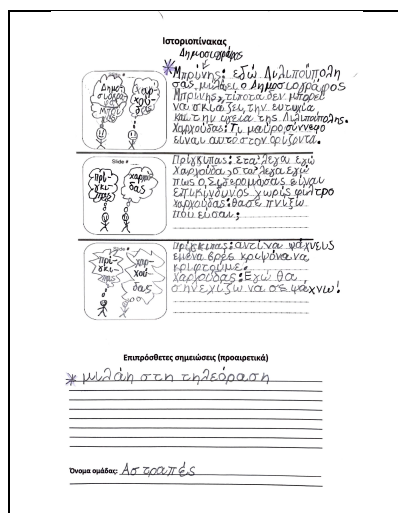 Ιστοριοπίνακας
Δημοσιογράφος
Slide #
Δημο-
σιογρα-
φος
Μπρί
νης
χαρ
χού-
δας
* Μπρίνης: εδώ Λιλιπούπολη
σας μιλάει ο Δημοσιογράφος
Μπρίνης, τίποτα δεν μπορεί
να σκιάζει, την ευτυχία
και την υγεία της Λιλιπούπολης.
Χαρχούδας: Τι μαύρο σύννεφο
είναι αυτό στον ορίζοντα.
Slide #
πρί-
γκι-
πας
χαρχού
δας
Πρίγκιπας: στα λεγα εγώ
Χαρχούδα, στα λεγα εγώ
πως ο Σιδερομάσας είναι
επικίνδυνος χωρίς φίλτρο
χαρχούδας: θα σε πνίξω
που είσαι;
Slide #
πρί-
γκι-
πας
χαρ-
χού-
δας
πρίγκιπας: αντί να ψάχνεις
εμένα βρές κρυψώνα να
κρυφτούμε.
χαρχούδας: Εχώ θα
συνεχίζω να σε ψάχνω!
Επιπρόσθετες σημειώσεις (προαιρετικά)
* μιλάη στη τηλεόραση
Όνομα ομάδας: Αστραπές